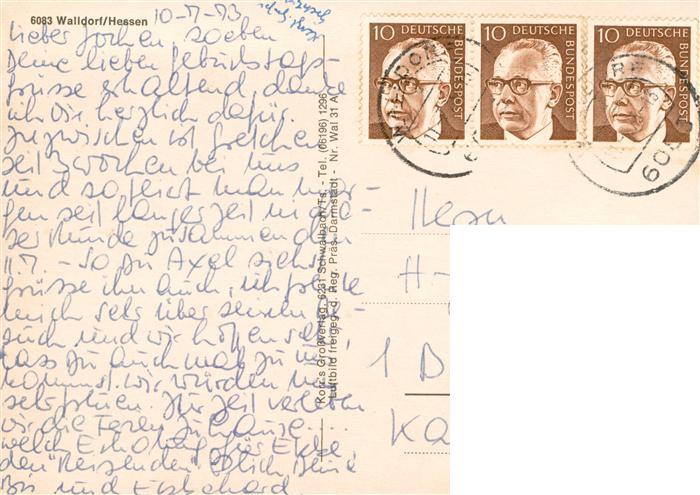 6083 Walldorf/Hessen
10-7-73
Lieber Jochen, soeben
Deine lieben Geburtstags-
grüsse erhaltend, danke
ich Dir herzlich dafür.
Inzwischen ist Gretchen
seit 2 Wochen bei uns
und so feiert man mor-
gen seit langer Zeit in
Runde zusammen den
11.7. - So Du Axel siehst
grüsse ihn auch, ich
mich sehr über seinen
und wir hoffen sehr
dass Du auch mal zu uns
kommst. Wir würden uns
sehr freuen. Zur Zeit verleben
wir die Ferien zu Hause...
welch Erholung für Eure
den "Reisenden" Herzlich Deine
und Eberhard
Korr's Großverlag, 6231 Schwalbach/Ts. - Tel. (06196) 1296
Luftbild freigeg. d. Reg. Präs. Darmstadt - Nr. Wal 31 A
10 DEUTSCHE BUNDESPOST
10 DEUTSCHE BUNDESPOST
10 DEUTSCHE BUNDESPOST
Herrn
H-
1 B
Ka